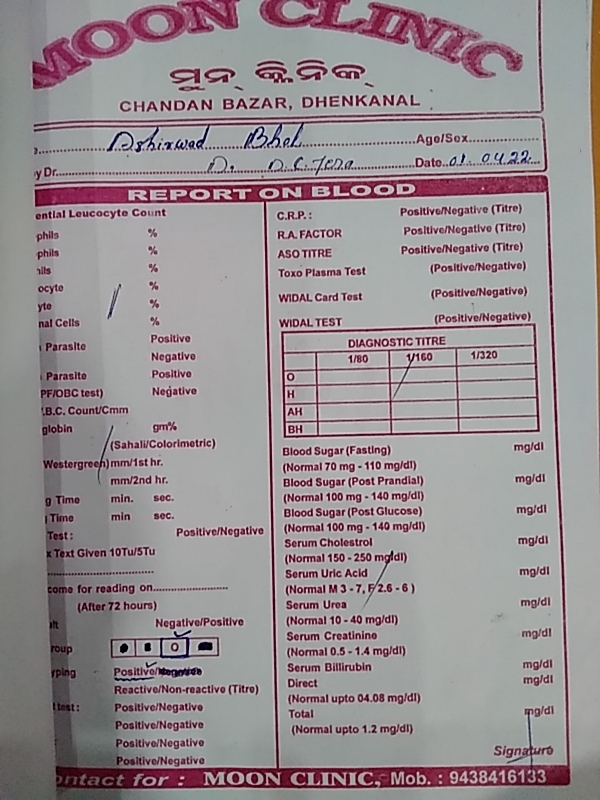 MOON CLINIC
ମୁନ୍ କ୍ଲିନିକ୍
CHANDAN BAZAR, DHENKANAL
Age/Sex
y Dr. D. Date 01 04 22
REPORT ON BLOOD
ential Leucocyte Count
phils %
phils %
hils %
ocyte %
yte %
nal Cells %
Parasite Positive
Negative
Parasite Positive
PF/OBC test) Negative
.B.C. Count/Cmm
globin gm%
(Sahali/Colorimetric)
Westergreen) mm/1st hr.
mm/2nd hr.
g Time min. sec.
Time min sec.
Test : Positive/Negative
x Text Given 10Tu/5Tu
come for reading on
(After 72 hours)
Negative/Positive
roup O
yping Positive/Negative
Reactive/Non-reactive (Titre)
test : Positive/Negative
Positive/Negative
Positive/Negative
Positive/Negative
C.R.P. : Positive/Negative (Titre)
R.A. FACTOR Positive/Negative (Titre)
ASO TITRE Positive/Negative (Titre)
Toxo Plasma Test (Positive/Negative)
WIDAL Card Test (Positive/Negative)
WIDAL TEST (Positive/Negative)
DIAGNOSTIC TITRE
1/80 1/160 1/320
O
H
AH
BH
Blood Sugar (Fasting) mg/dl
(Normal 70 mg - 110 mg/dl)
Blood Sugar (Post Prandial) mg/dl
(Normal 100 mg - 140 mg/dl)
Blood Sugar (Post Glucose) mg/dl
(Normal 100 mg - 140 mg/dl)
Serum Cholestrol mg/dl
(Normal 150 - 250 mg/dl)
Serum Uric Acid mg/dl
(Normal M 3 - 7, F 2.6 - 6 )
Serum Urea mg/dl
(Normal 10 - 40 mg/dl)
Serum Creatinine mg/dl
(Normal 0.5 - 1.4 mg/dl)
Serum Billirubin mg/dl
Direct mg/dl
(Normal upto 04.08 mg/dl)
Total mg/dl
(Normal upto 1.2 mg/dl)
Signature
ontact for : MOON CLINIC, Mob. : 9438416133